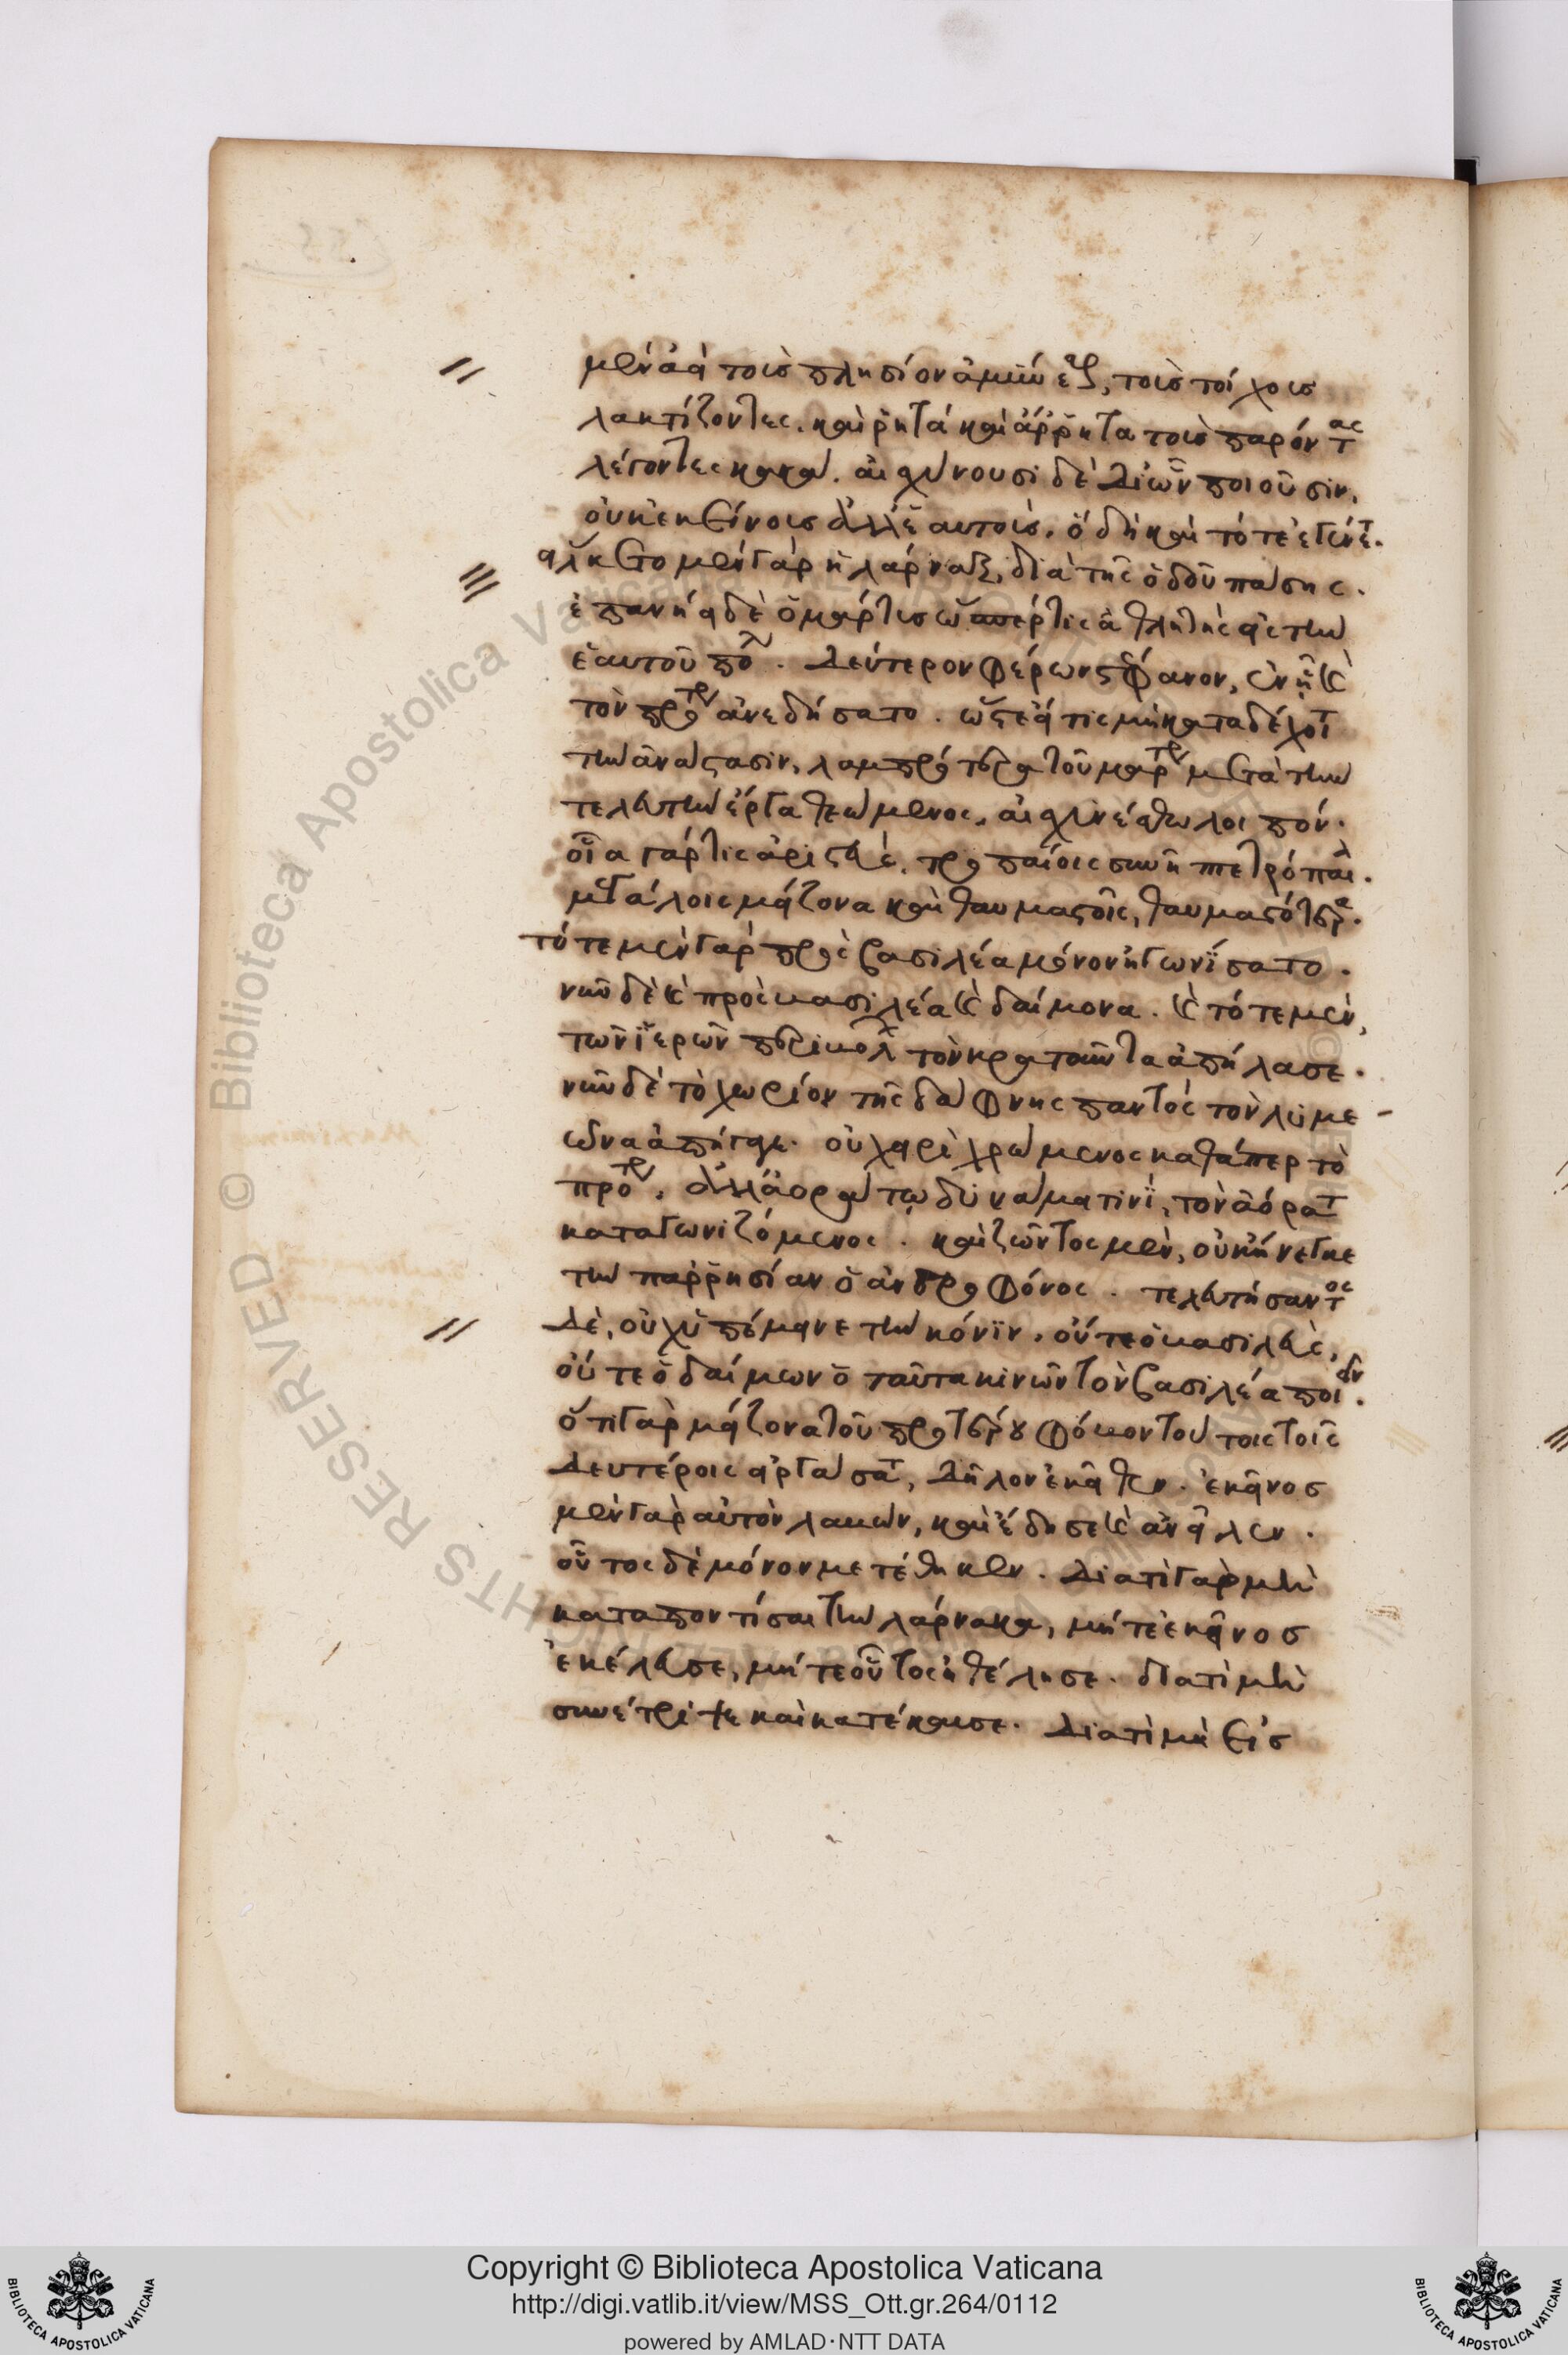 μὲν ἀεὶ τοῖς πλησίον ἀμυν εξ, τοῖς τοίχοις
λακτίζοντες. καὶ ῥητὰ καὶ ἄρρητα τοῖς παρόντας
λέγοντες κακά. αἰσχύνουσι δὲ δι' ὧν ποιοῦσιν,
οὐκ ἐκείνοις ἀλλ' ἑαυτοῖς. ὃ δὴ καὶ τότε ἐγένετ.
εἵλκετο μὲν γὰρ ἡ λάρναξ, διὰ τῆς ὁδοῦ πάσης.
ἐπανήει δὲ ὁ μάρτυς ὥσπερ τις ἀθλητὴς εἰς τὴν
ἑαυτοῦ πόλ. δεύτερον φέρων στέφανον, ἐν ᾗ καὶ
τὸν πρότερ ἀνεδήσατο. ὥστε εἴ τις μὴ καταδέχοιτ
τὴν ἀνάστασιν, λαμπρότερα τοῦ μάρτυρ μετὰ τὴν
τελευτὴν ἔργα θεώμενος, αἰσχυνέσθω λοιπόν.
οἷα γάρ τις ἀριστεύς, τροπαίοις συνῆπτε τρόπαια.
μεγάλοις μείζονα καὶ θαυμαστοῖς, θαυμαστότερα.
τότε μὲν γὰρ πρὸς βασιλέα μόνον ἠγωνίσατο.
νῦν δὲ καὶ πρὸς βασιλέα καὶ δαίμονα. καὶ τότε μὲν,
τῶν ἱερῶν περιβολ τὸν κρατοῦντα ἀπήλασε.
νῦν δὲ τὸ χωρίον τῆς δάφνης παντὸς τὸν λυμε-
ῶνα ἀπήγαγε. οὐ χειρὶ χρώμενος καθάπερ τὸ
πρότερ. ἀλλ' ἀοράτῳ δυνάμει τινί, τὸν ἀόρατ
καταγωνιζόμενος. καὶ ζῶντος μὲν, οὐκ ἤνεγκε
τὴν παρρησίαν ὁ ἀνδροφόνος. τελευτήσαντος
δὲ, οὐχ ὑπέμεινε τὴν κόνιν. οὔτε ὁ βασιλεὺς,
οὔτε ὁ δαίμων ὁ ταῦτα κινῶν τὸν βασιλέα ποιεῖν.
ὅτι γὰρ μείζονα τοῦ προτέρου φόβον τούτοις τοῖς
δευτέροις εἰργάσατ, δῆλον ἐκεῖθεν. ἐκεῖνος
μὲν γὰρ αὐτὸν λαβὼν, καὶ ἔδησε καὶ ἀνεῖλεν.
οὗτος δὲ μόνον μετέθηκεν. διατί γὰρ μὴ
καταποντίσαι τὴν λάρνακα, μήτε ἐκεῖνος
ἐκέλευσε, μήτε οὗτος ἠθέλησε. διατί μὴ
συνέτριψε καὶ κατέκαυσε. διατί μὴ εἰς
Copyright © Biblioteca Apostolica Vaticana
http://digi.vatlib.it/view/MSS_Ott.gr.264/0112
powered by AMLAD·NTT DATA